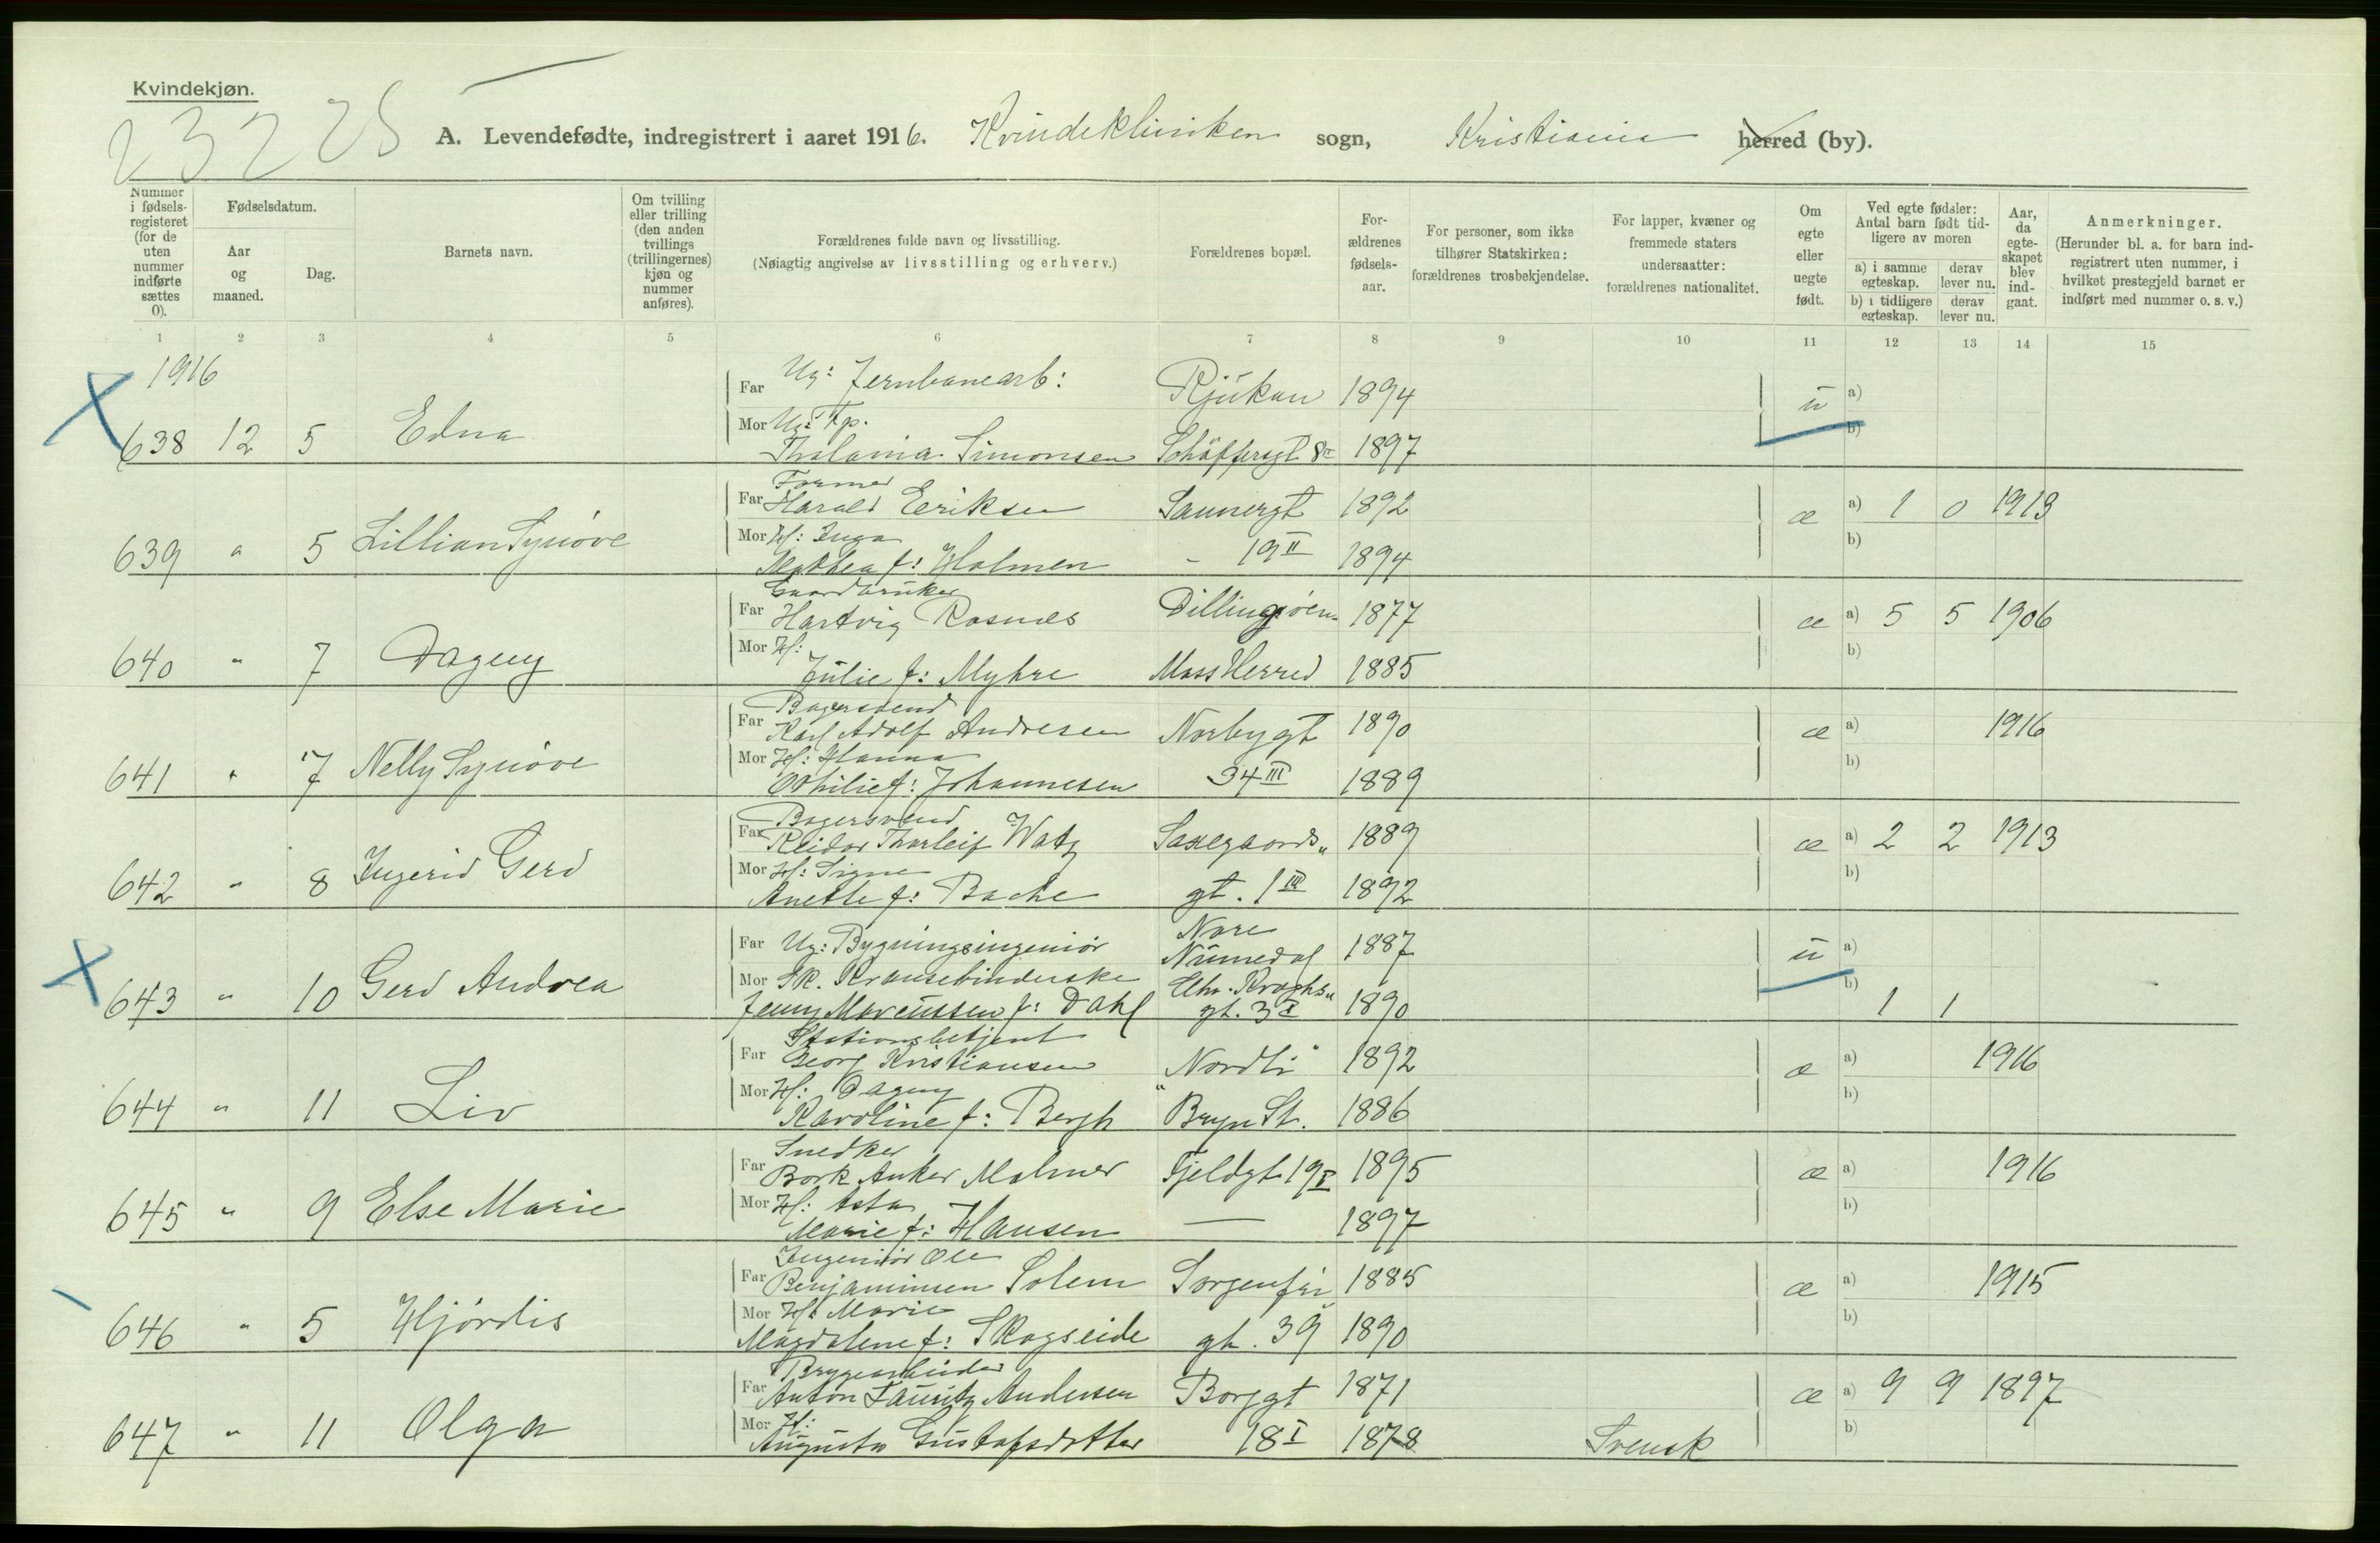 Kvindekjøn.
23225
A. Levendefødte, indregistrert i aaret 1916. Kvindekliniken sogn, Kristiania herred (by).
Nummer i fødsels-registeret (for de uten nummer indførte sættes 0).
Fødselsdatum.
Aar og maaned.
Dag.
Barnets navn.
Om tvilling eller trilling (den anden tvillings (trillingernes) kjøn og nummer anføres).
Forældrenes fulde navn og livsstilling.
(Nøiagtig angivelse av livsstilling og erhverv.)
Forældrenes bopæl.
For-ældrenes fødsels-aar.
For personer, som ikke tilhører Statskirken: forældrenes trosbekjendelse.
For lapper, kvæner og fremmede staters undersaatter: forældrenes nationalitet.
Om egte eller uegte født.
Ved egte fødsler: Antal barn født tid-ligere av moren
a) i samme egteskap. derav lever nu.
b) i tidligere egteskap. derav lever nu.
Aar, da egte-skapet blev ind-gaat.
Anmerkninger.
(Herunder bl. a. for barn ind-registrert uten nummer, i hvilket prestegjeld barnet er indført med nummer o. s. v.)
1 2 3 4 5 6 7 8 9 10 11 12 13 14 15
1916
Far Ug: Jernbanearb: Rjukan 1894 u a)
638 12 5 Edna Mor Ug: Tp. b)
Simonsen 8 II 1897
Former
Far Harald Eriksen Sannergt 1892 æ a) 1 0 1913
639 " 5 Lillian Synöve Mor H: Inga b)
Mathea f: Holmen - 19 II 1894
Gaardbruker
Far Hartvig Rosnes Dillingöen 1877 æ a) 5 5 1906
640 " 7 Dagny Mor H: b)
Julie f: Myhre Moss Herred 1885
Bagersvend
Far Karl Adolf Andresen Norbygt 1890 æ a) 1916
641 " 7 Nelly Synöve Mor H: Hanna b)
Othilie f: Johannesen 34 III 1889
Bagersvend
Far Reidar Thorleif Watz Saxegaards„ 1889 æ a) 2 2 1913
642 " 8 Ingerid Gerd Mor H: Signe b)
Anette f: Bache gt. 1 III 1892
Nore
Far Ug: Bygningsingeniör Numedal 1887 u a)
643 " 10 Gerd Andrea Mor Sk. Kransebinderske Chr. Kroghs„ b)
Jenny Marcussen f: Dahl gt. 3 I 1890 1 1
Stationsbetjent
Far Georg Kristiansen Nordli" 1892 æ a) 1916
644 " 11 Liv Mor H: Dagny b)
Karoline f: Bergh "Bryn St. 1886
Snedker
Far Bork Anker Malmer Fjeldgt 19 I 1895 æ a) 1916
645 " 9 Else Marie Mor H: Asta b)
Marie f: Hansen — 1897
Ingeniör Ole
Far Benjaminsen Solem Sorgenfri„ 1885 æ a) 1915
646 " 5 Hjördis Mor H: Marie b)
Magdalene f: Skogseide gt. 39 1890
Bryggearbeider
Far Anton Lauritz Andersen Borggt 1871 æ a) 9 9 1897
647 " 11 Olga Mor H: b)
Augusta Gustafsdotter 18 I 1878 Svensk